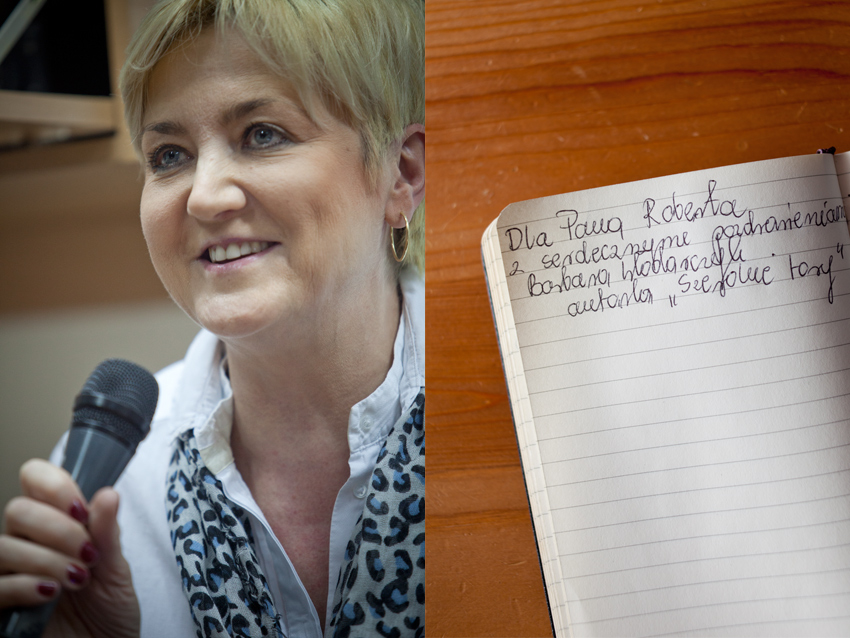 Dla Pana Roberta
z serdecznymi pozdrowieniami
Barbara Włodarczyk
autorka „Szerokie tory”